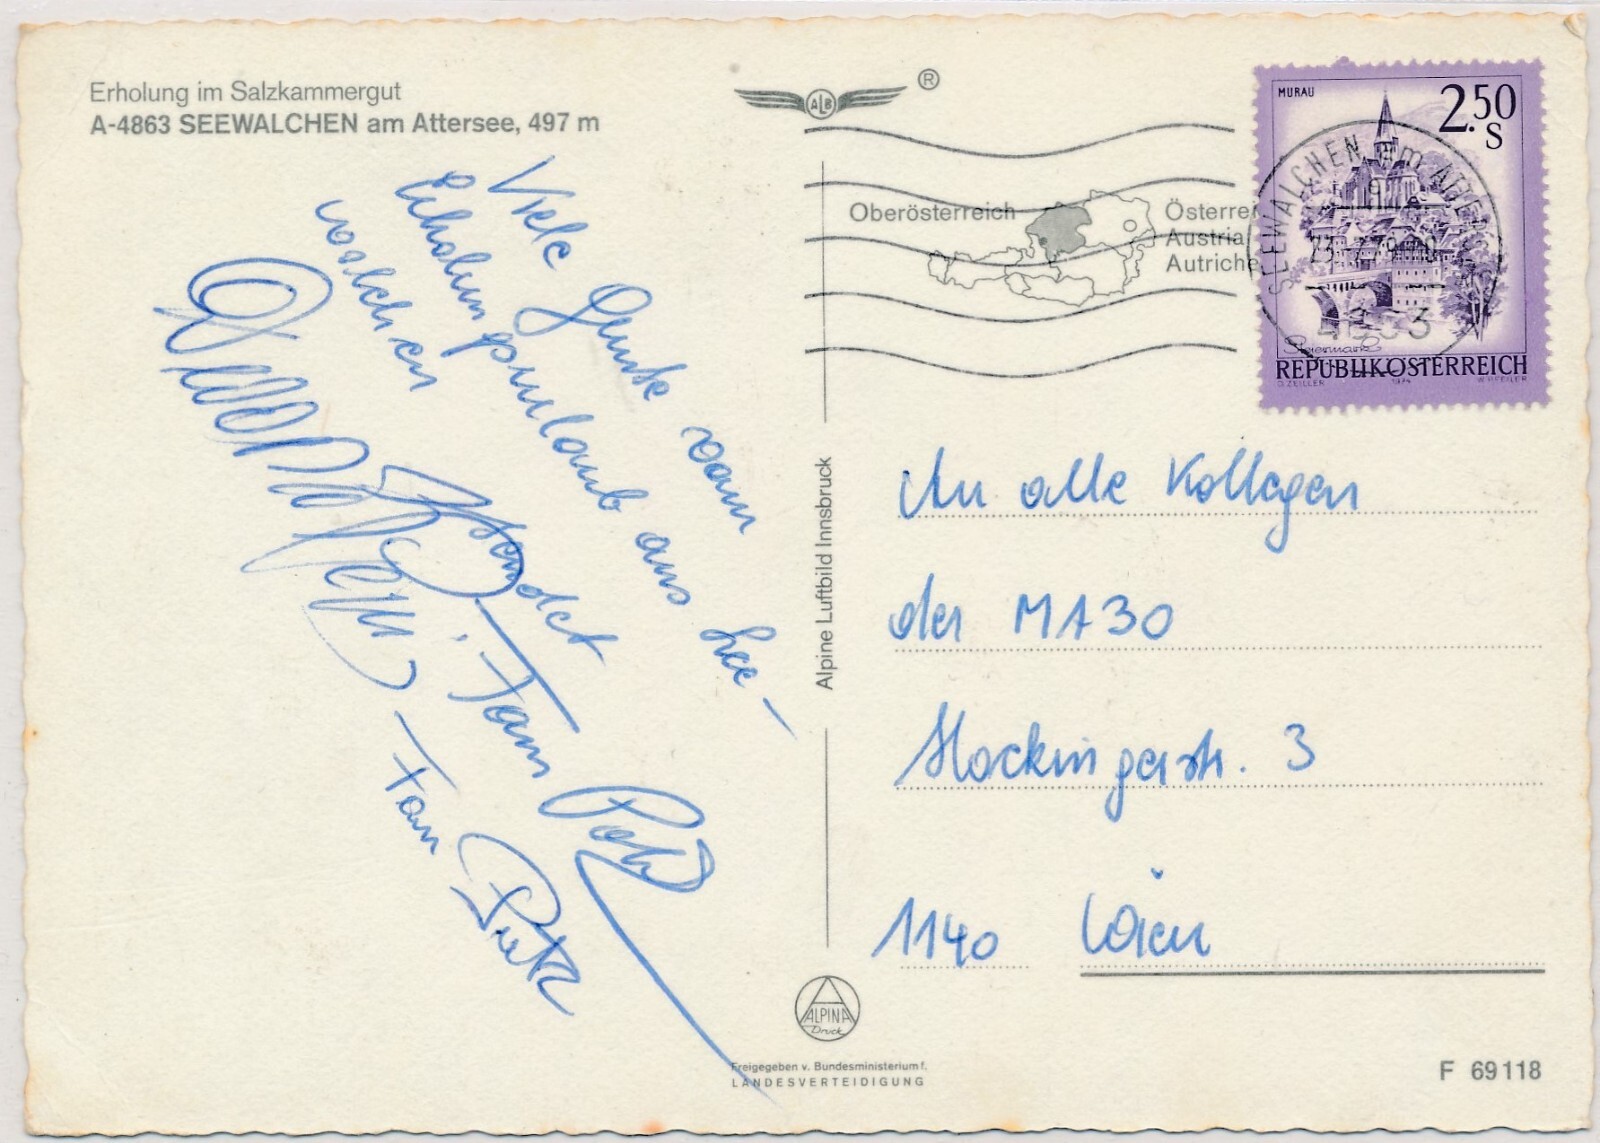 Erholung im Salzkammergut
A-4863 SEEWALCHEN am Attersee, 497 m
Viele Grüße vom
Erholungsurlaub aus See-
walchen
sendet
Fam
Fam
ALB
®
Oberösterreich
Österrei
Austria
Autriche
Alpine Luftbild Innsbruck
MURAU
2.50
S
Steiermark
REPUBLIK ÖSTERREICH
O. ZEILLER 1974 W. PFEILER
SEEWALCHEN am ATTERSEE
4863
An alle Kollegen
der MA30
Hackingerstr. 3
1140 Wien
ALPINA
Druck
Freigegeben v. Bundesministerium f.
LANDESVERTEIDIGUNG
F 69118